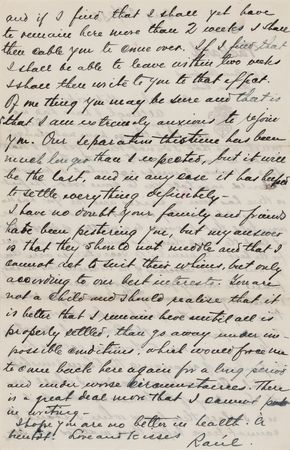 and if I find that I shall yet have
to remain here more than 2 weeks I shall
then cable you to come over. If I find that
I shall be able to leave within two weeks
I shall then write to you to that effect.
Of one thing you may be sure and that is
that I am extremely anxious to rejoin
you. Our separation this time has been
much longer than I expected, but it will
be the last, and in any case it has helped
to settle everything definitely.
I have no doubt your family and friends
have been pestering you, but my answer
is that they should not meddle and that I
cannot act to suit their whims, but only
according to our best interests. You are
not a child and should realize that it
is better that I remain here until all is
properly settled, than go away under im-
possible conditions, which would force me
to come back here again for a long period
and under worse circumstances. There
is a great deal more that I cannot put
in writing -
I hope you are no better in health. A
Love and kisses
Raúl.